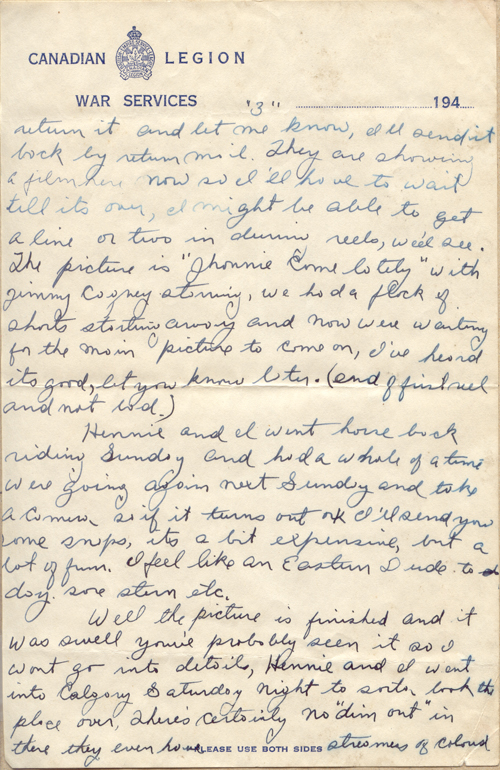 CANADIAN LEGION
WAR SERVICES "3" 194
return it and let me know, I'll send it
back by return mail. They are showing
a film here now so I'll have to wait
till its over, I might be able to get
a line or two in durinn reels, we'll see.
The picture is "Jhonnie Come lately" with
Jimmy Cagney starring, we had a flock of
shorts starting away and now were waiting
for the main picture to come on, I've heard
its good, let you know later. (end of first reel
and not bad.)
Hennie and I went horse back
riding Sunday and had a whale of a time
were going again next Sunday and take
a camera so if it turns out ok I'll send you
some snaps, its a bit expensive, but a
lot of fun. I feel like an Eastern Dude to
day. sore stern etc.
Well the picture is finished and it
was swell you've probably seen it so I
wont go into details, Hennie and I went
into Calgary Saturday night to sorta look the
place over, there's certainly no "dim out" in
there they even have streamers of colored
PLEASE USE BOTH SIDES